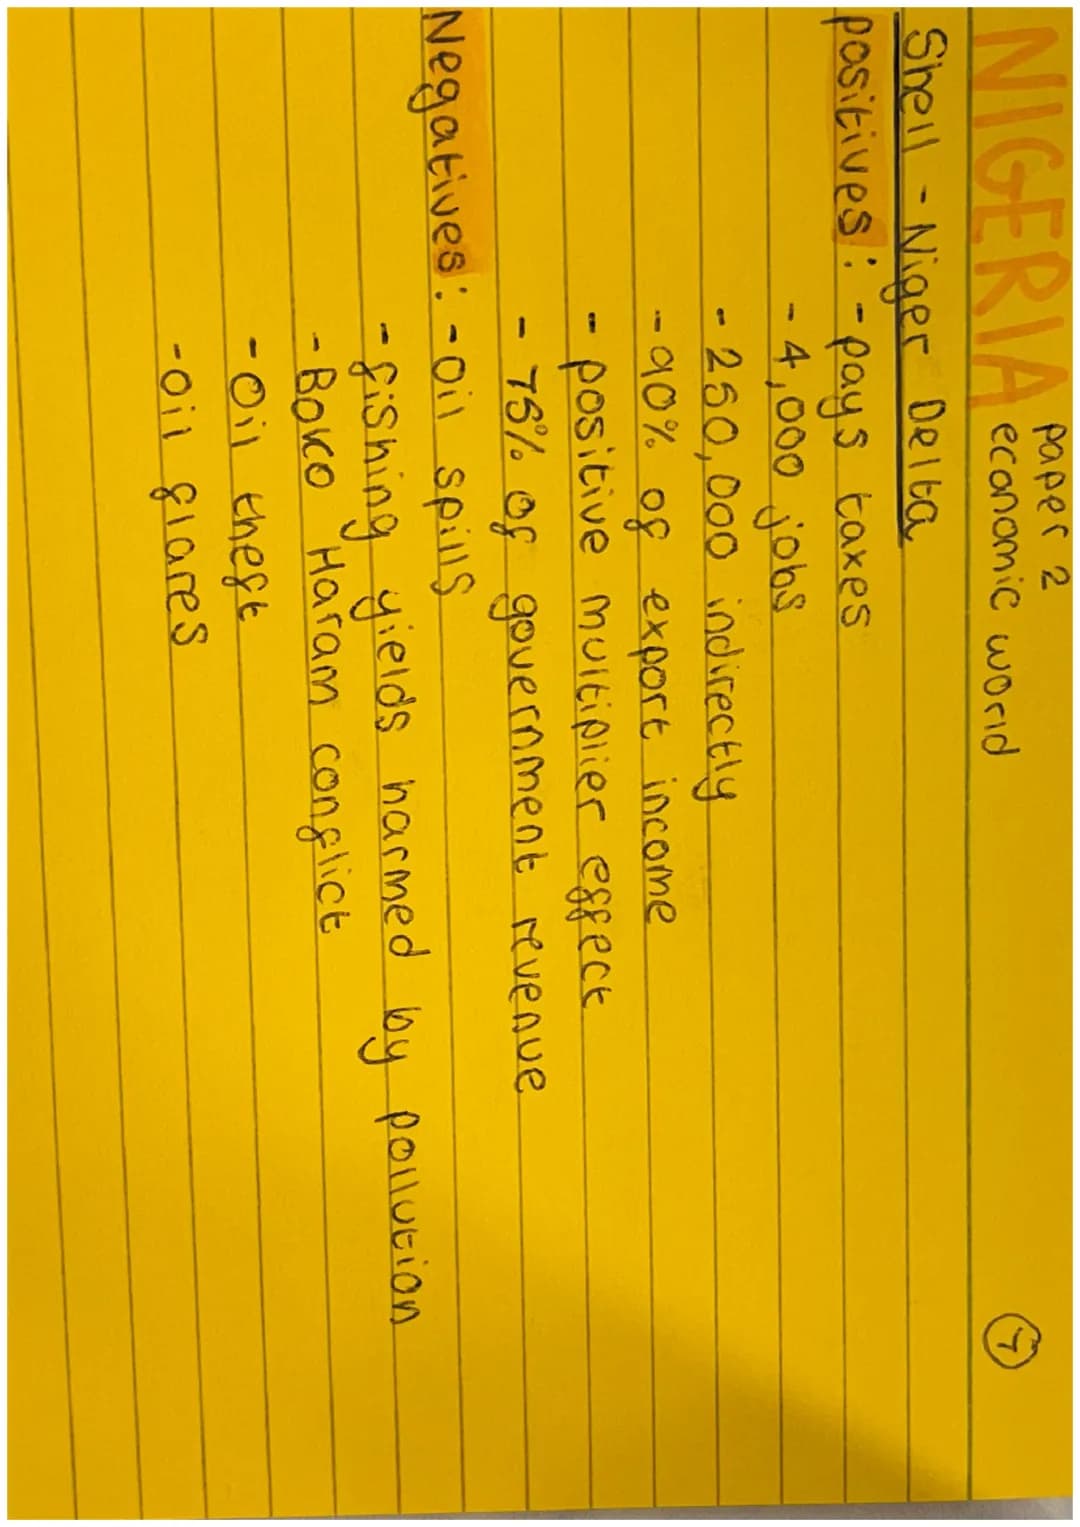 NIGERIA paper 2
economic world 7
Shell - Niger Delta
positives: - pays taxes
- 4,000 jobs
- 250,000 indirectly
- 90% of export income
- positive multiplier effect
- 75% of government revenue
Negatives: - oil spills
- fishing yields harmed by pollution
- Boko Haram conflict
- Oil theft
- oil flares